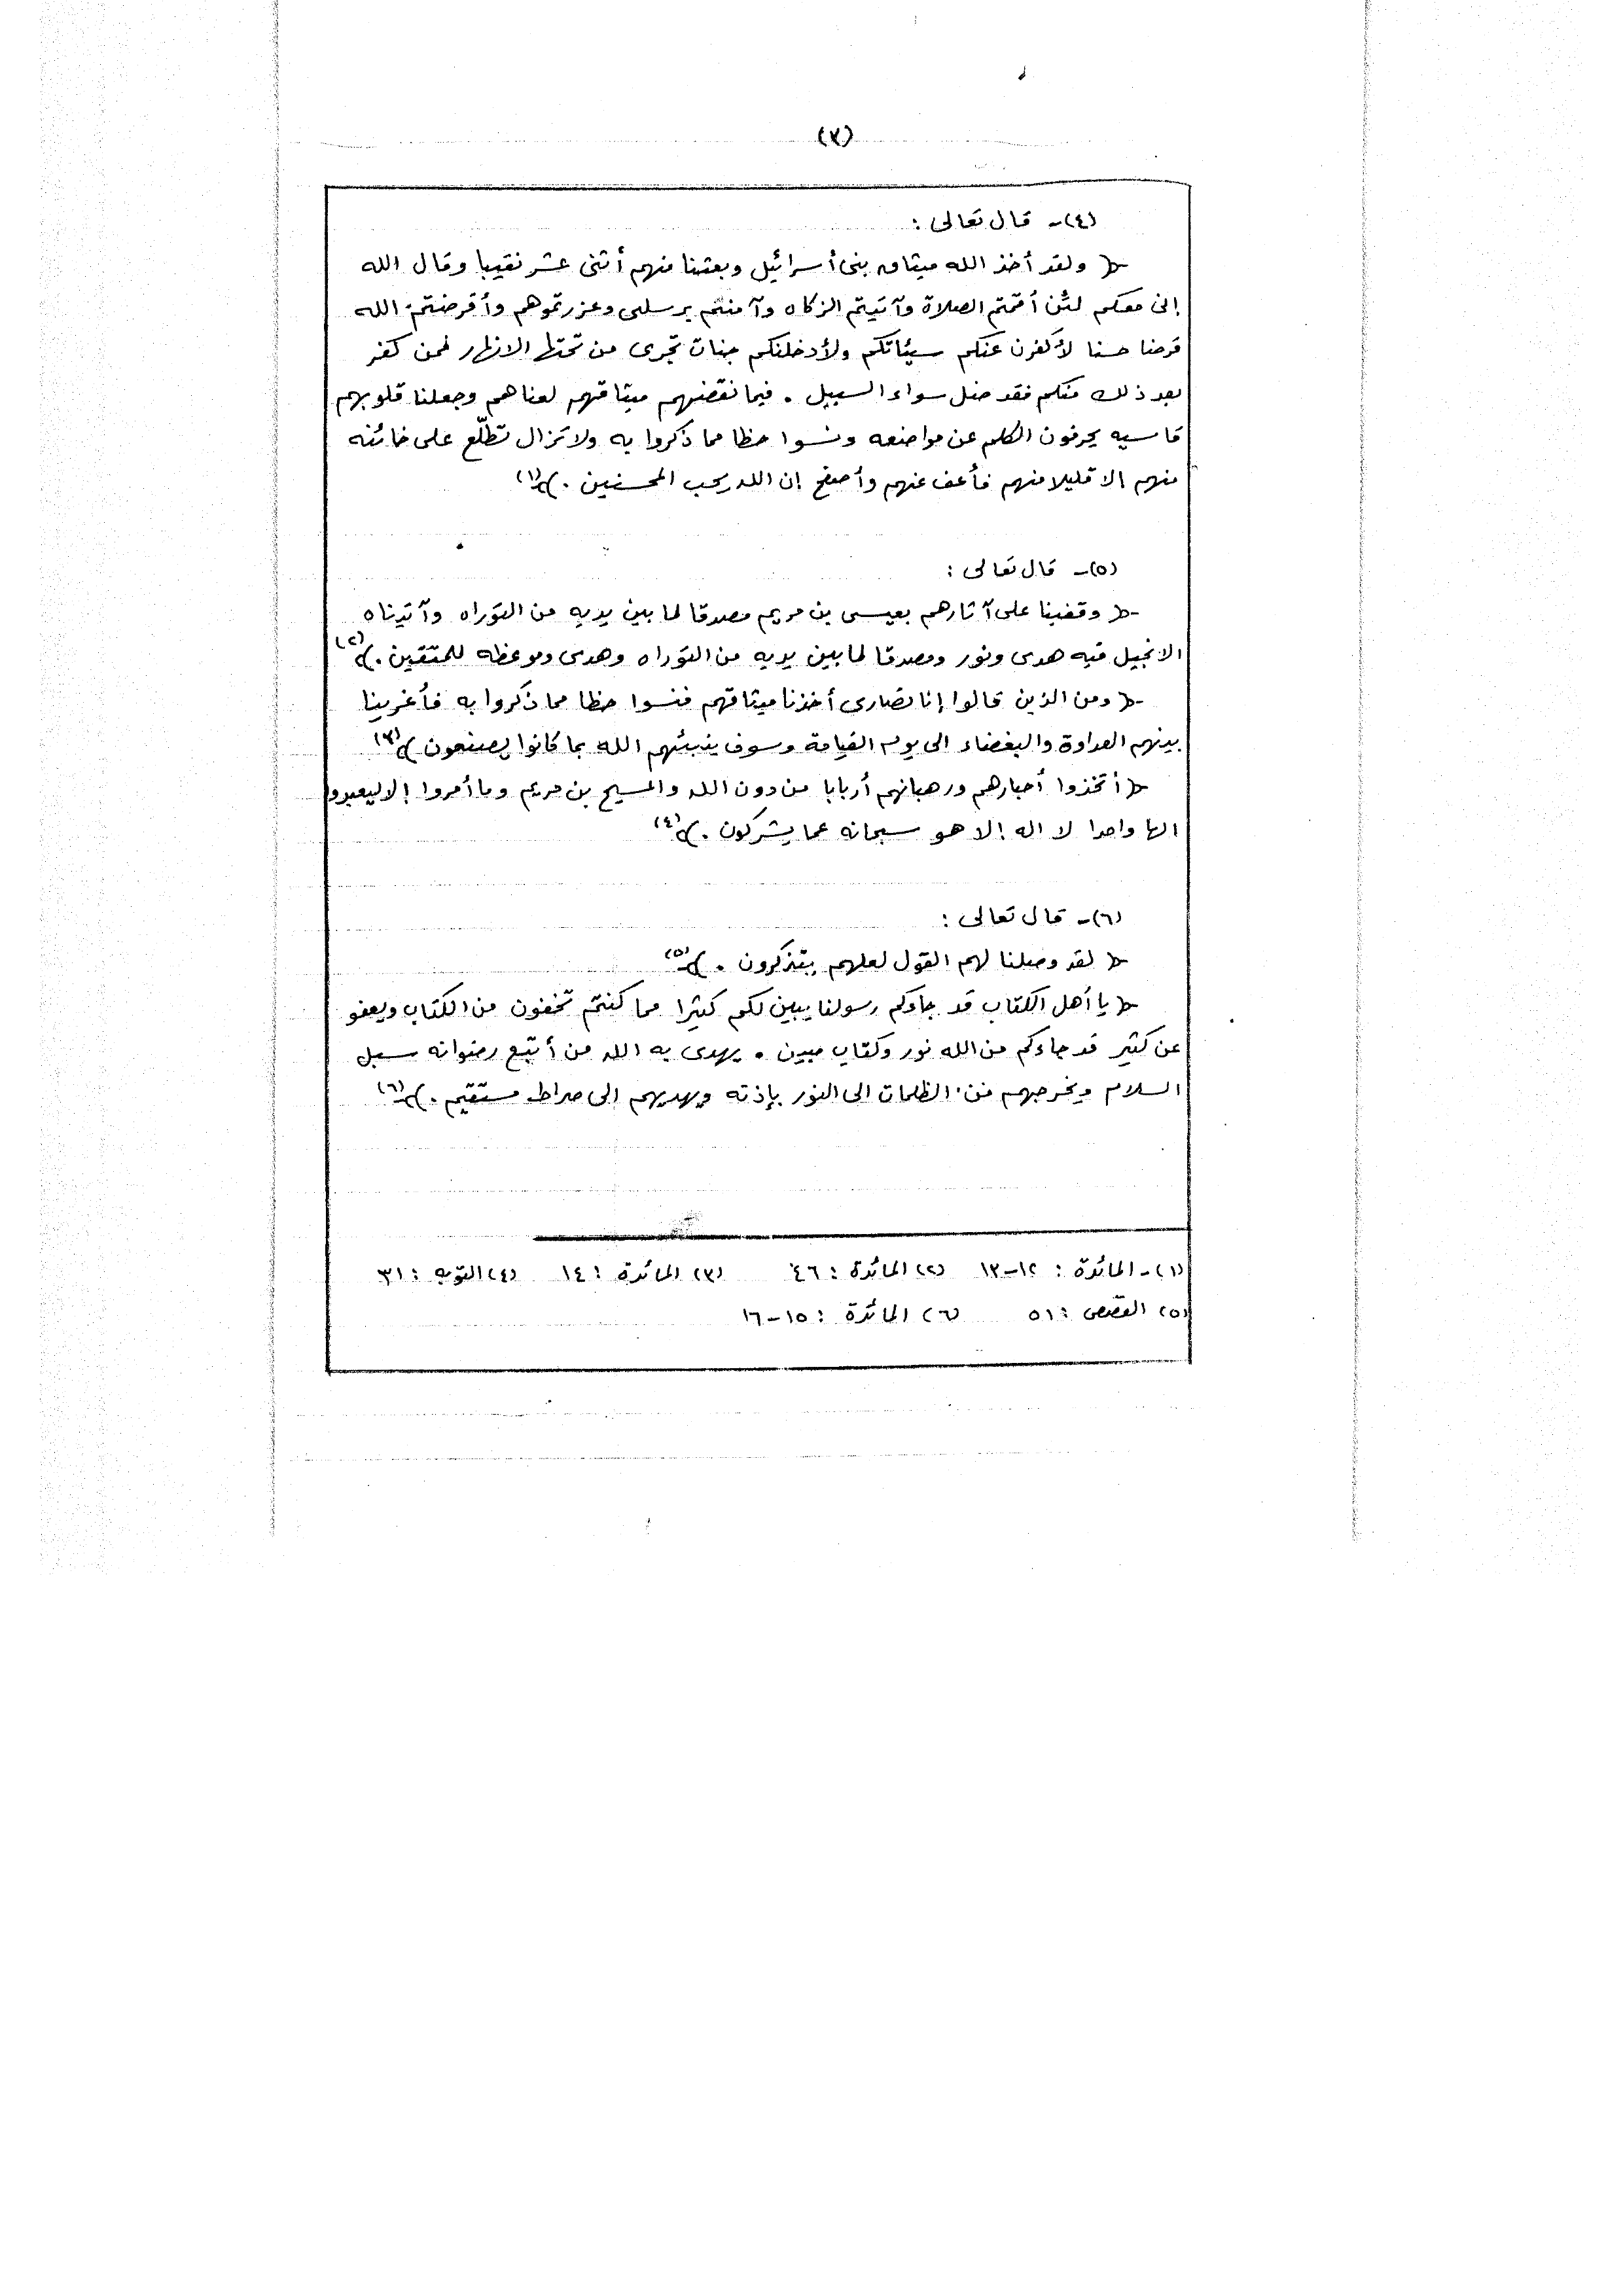 (٧)
(٤)- قال تعالى :
﴿ ولقد أخذ الله ميثاق بنى أسرائيل وبعثنا منهم أثنى عشر نقيبا وقال الله
إنى معكم لئن أقمتم الصلاة وآتيتم الزكاه وآمنتم برسلى وعزرتموهم وأقرضتم الله
قرضا حسنا لأكفرن عنكم سيئاتكم ولأدخلنكم جنات تجرى من تحتها الانهار فمن كفر
بعد ذلك منكم فقد ضل سواء السبيل . فبما نقضهم ميثاقهم لعناهم وجعلنا قلوبهم
قاسيه يحرفون الكلم عن مواضعه ونسوا حظا مما ذكروا به ولا تزال تطلّع على خائنه
منهم إلا قليلا منهم فأعف عنهم وأصفح إن الله يحب المحسنين . ﴾(١)
(٥)- قال تعالى :
﴿ وقفينا على آثارهم بعيسى بن مريم مصدقا لما بين يديه من التوراه وآتيناه
الانجيل فيه هدى ونور ومصدقا لما بين يديه من التوراه وهدى وموعظه للمتقين . ﴾(٢)
﴿ ومن الذين قالوا إنا نصارى أخذنا ميثاقهم فنسوا حظا مما ذكروا به فأغرينا
بينهم العداوة والبغضاء الى يوم القيامة وسوف ينبئهم الله بما كانوا يصنعون ﴾(٣)
﴿ أتخذوا أحبارهم ورهبانهم أربابا من دون الله والمسيح بن مريم وما أمروا إلا ليعبدوا
الها واحدا لا اله إلا هو سبحانه عما يشركون . ﴾(٤)
(٦)- قال تعالى :
﴿ لقد وصلنا لهم القول لعلهم يتذكرون . ﴾(٥)
﴿ يا أهل الكتاب قد جاءكم رسولنا يبين لكم كثيرا مما كنتم تخفون من الكتاب ويعفو
عن كثير قد جاءكم من الله نور وكتاب مبين . يهدى به الله من أتبع رضوانه سبل
السلام ويخرجهم من الظلمات الى النور بإذنه ويهديهم الى صراط مستقيم . ﴾(٦)
(١)- المائدة : ١٢-١٣ (٢) المائدة : ٤٦ (٣) المائدة : ١٤ (٤) التوبه : ٣١
(٥) القصص : ٥١ (٦) المائدة : ١٥-١٦